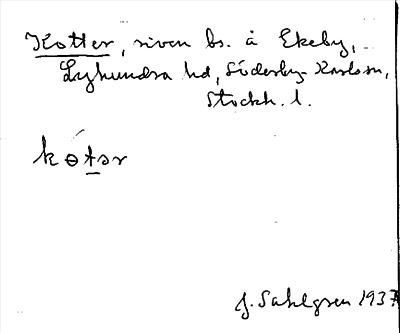 Kotter, riven bs. å Ekeby,
Lyhundra hd, Söderby-Karlsm,
Stockh. l.
kɵtər
J. Sahlgren 1937